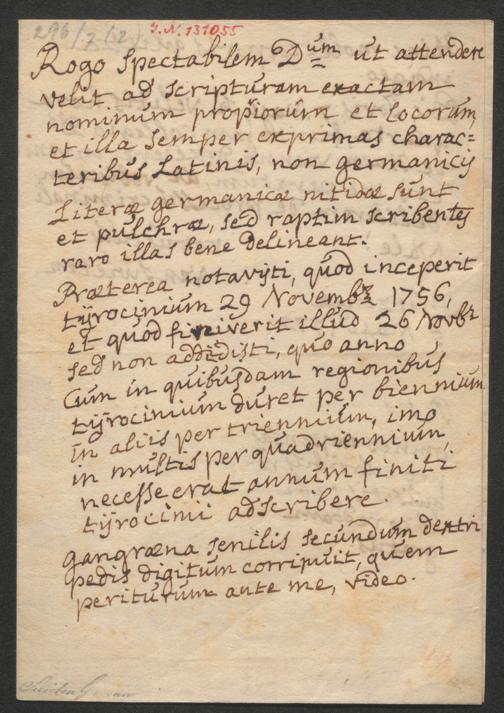 296/7 [2]
I.N. 131055
Rogo Spectabilem Dum ut attendere
velit ad scripturam exactam
nominum propriorum et locorum
et illa semper exprimas charac=
teribus Latinis, non germanicis
Literæ germanicæ nitidæ sunt
et pulchræ, sed raptim scribentes
raro illas bene delineant.
Præterea notavisti, quod inceperit
tÿrocinium 29 Novembr 1756,
et quod finiverit illud 26 Novbr
sed non addidisti, quo anno
Cum in quibusdam regionibus
tÿrocinium duret per biennium
in aliis per triennium, imo
in multis per quadriennium,
necesse erat annum finiti
tÿrocinii adscribere.
Gangræna senilis secundum dextri
pedis digitum corripuit, quem
periturum ante me, video.